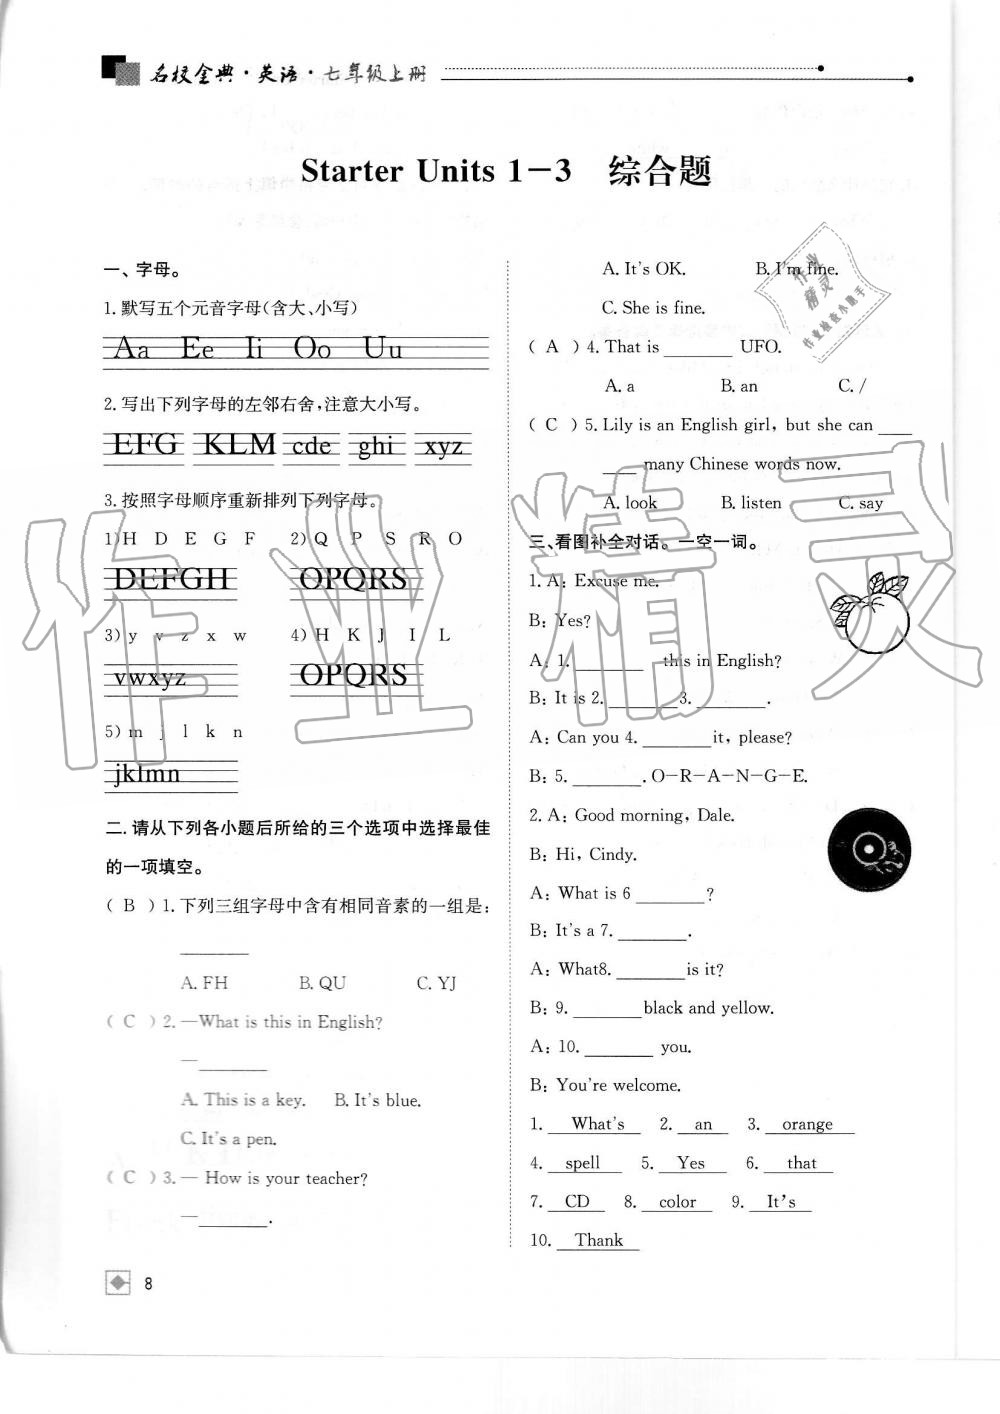 名校金典·英语·七年级上册
Starter Units 1-3 综合题
一、字母。
1.默写五个元音字母(含大、小写)
Aa Ee Ii Oo Uu
2.写出下列字母的左邻右舍,注意大小写。
EFG KLM cde ghi xyz
3.按照字母顺序重新排列下列字母。
1)H D E G F 2)Q P S R O
DEFGH OPQRS
3)y v z x w 4)H K J I L
vwxyz OPQRS
5)m j l k n
jklmn
二.请从下列各小题后所给的三个选项中选择最佳
的一项填空。
( B )1.下列三组字母中含有相同音素的一组是:
________
A.FH B.QU C.YJ
( C )2.—What is this in English?
—________
A.This is a key. B.It's blue.
C.It's a pen.
( C )3.— How is your teacher?
—________.
A.It's OK. B.I'm fine.
C.She is fine.
( A )4.That is ________ UFO.
A.a B.an C./
( C )5.Lily is an English girl, but she can ____
____ many Chinese words now.
A.look B.listen C.say
三、看图补全对话。一空一词。
1.A: Excuse me.
B: Yes?
A: 1.________ this in English?
B: It is 2.________3.________.
A: Can you 4.________it, please?
B: 5.________.O-R-A-N-G-E.
2.A: Good morning, Dale.
B: Hi, Cindy.
A: What is 6 ________?
B: It's a 7.________.
A: What8.________is it?
B: 9.________black and yellow.
A: 10.________ you.
B: You're welcome.
1. What's 2. an 3. orange
4. spell 5. Yes 6. that
7. CD 8. color 9. It's
10. Thank
8
作业精灵
作业精灵
作业检查小助手